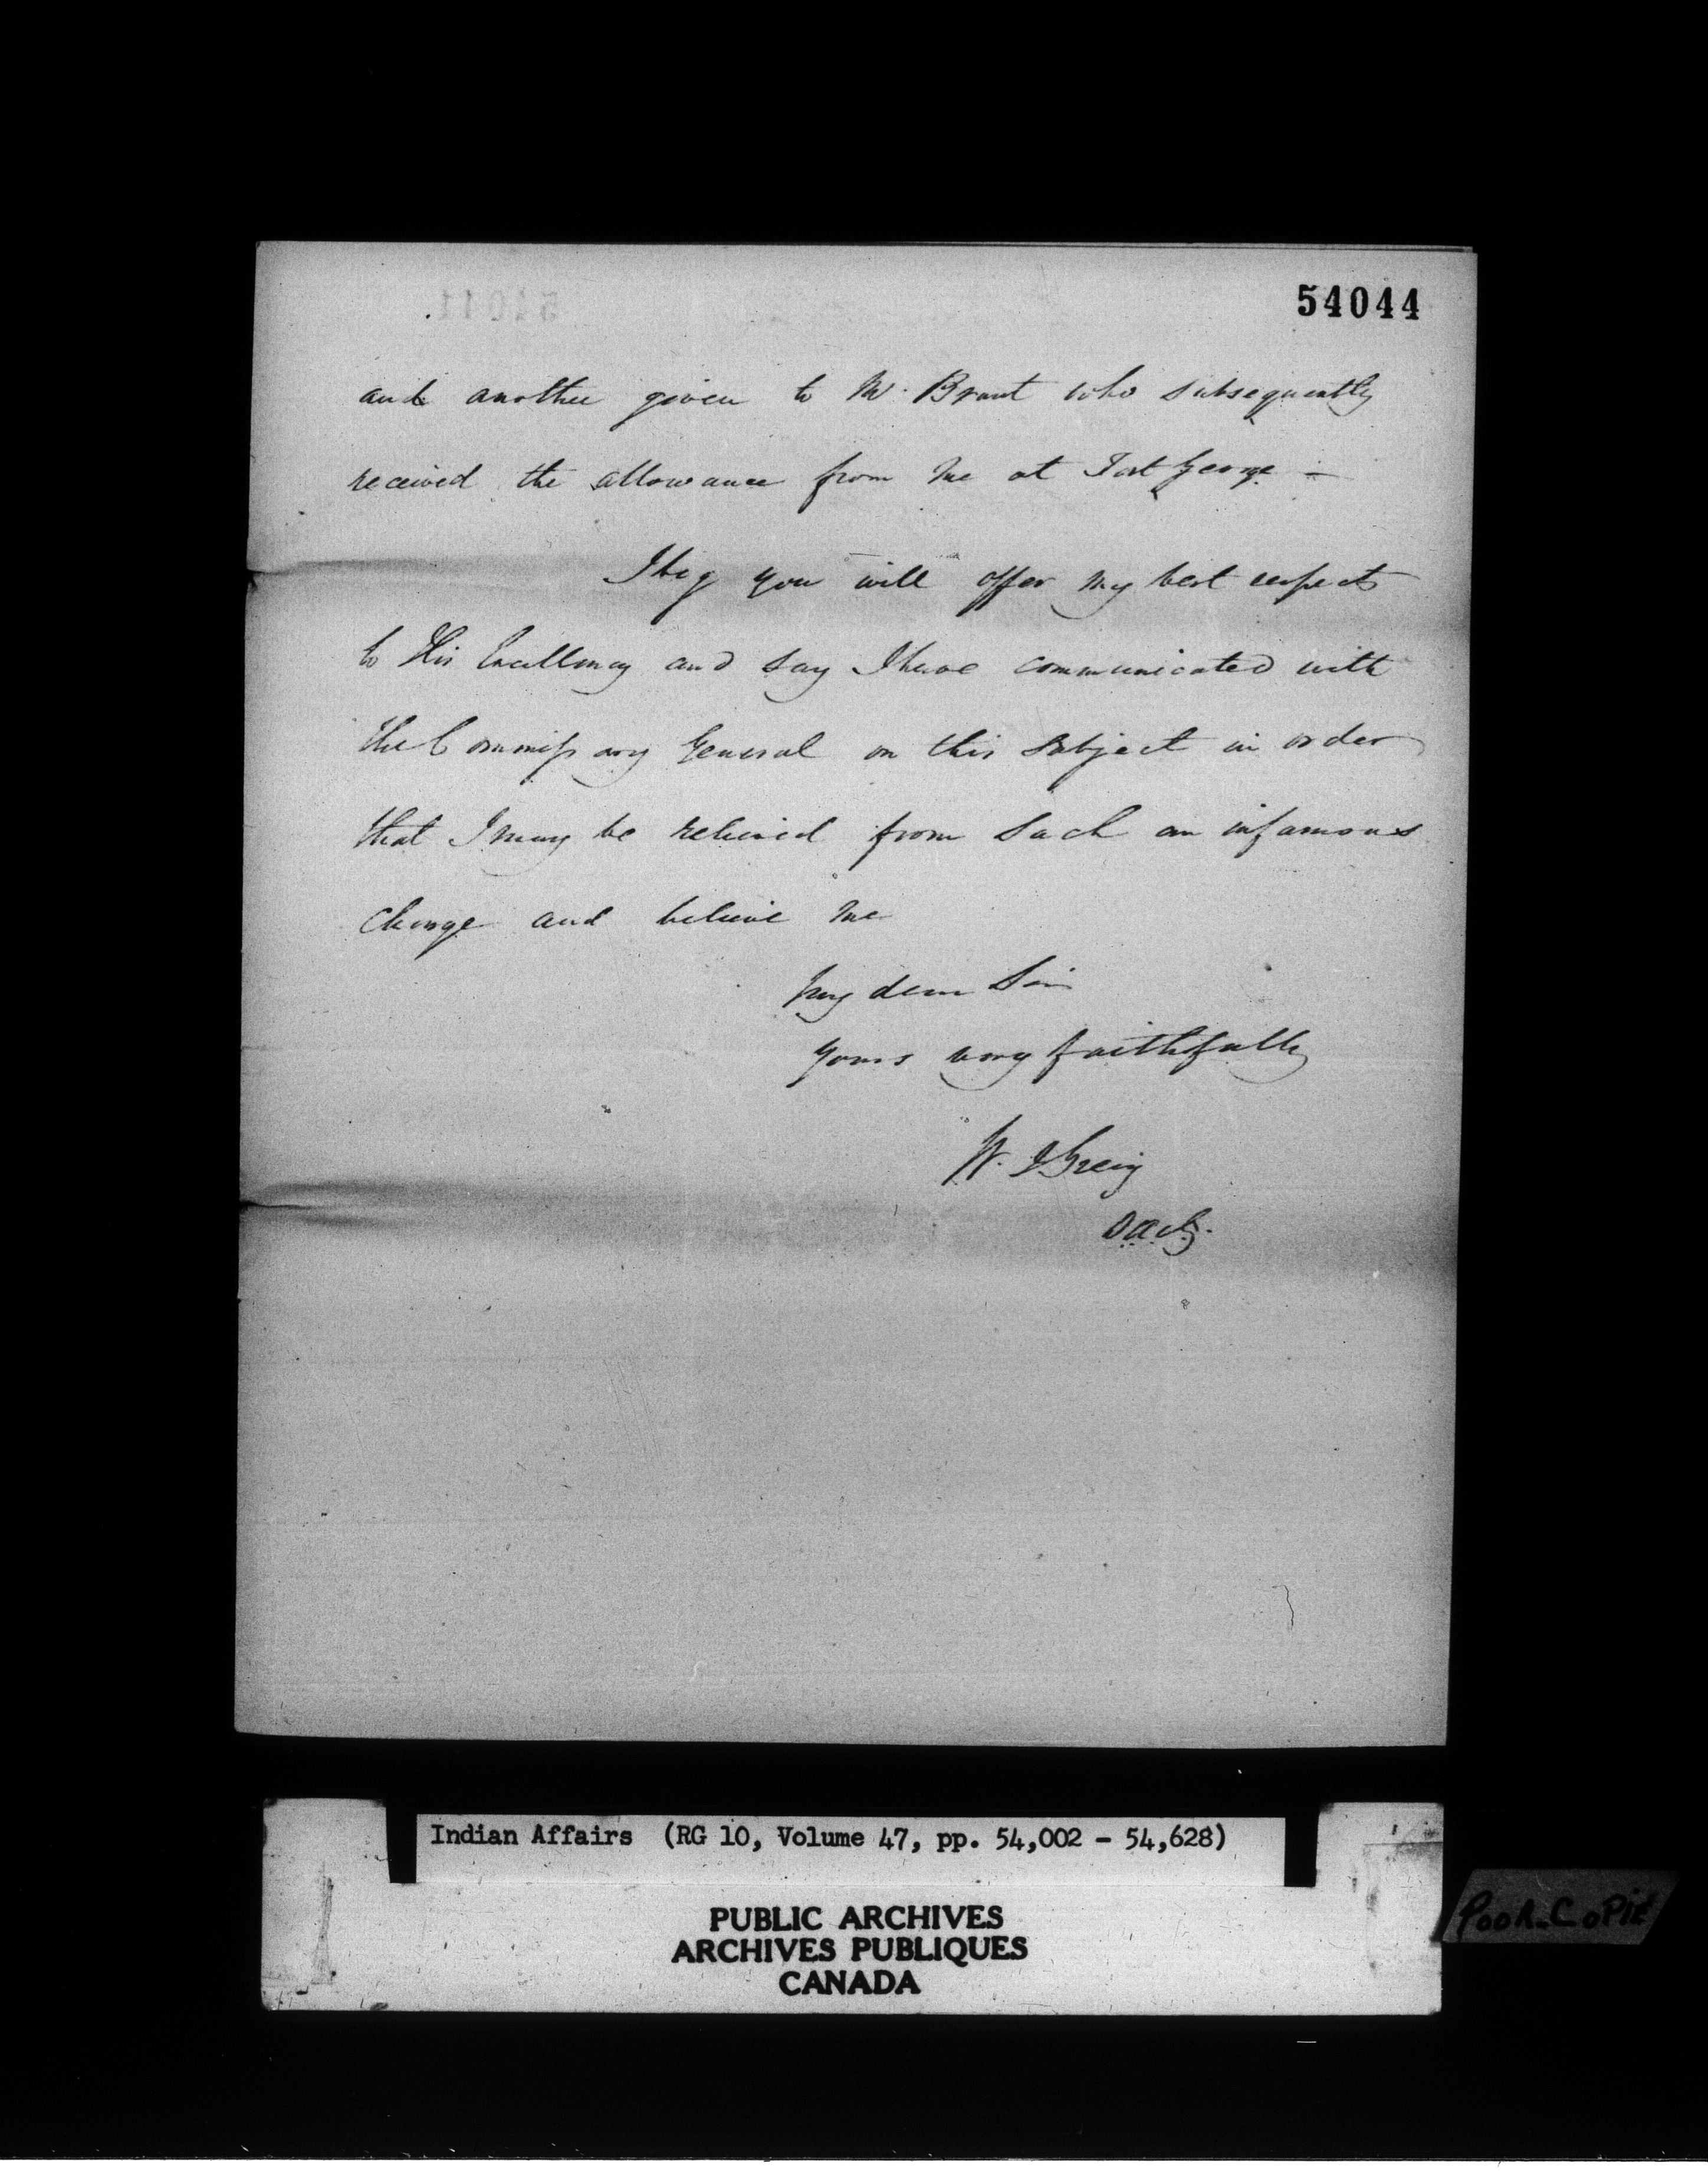 54044
and another given to Mr. Brant who subsequently
received the allowance from me at Fort George –
I beg you will offer my best respects
to His Excellency and say I have communicated with
the Commissary General on this subject in order
that I may be relieved from such an infamous
charge and believe me
My dear Sir
Yours very faithfully
W. J Greig
D.A.C.G.
Indian Affairs (RG 10, Volume 47, pp. 54,002 - 54,628)
PUBLIC ARCHIVES
ARCHIVES PUBLIQUES
CANADA
POOR COPIE